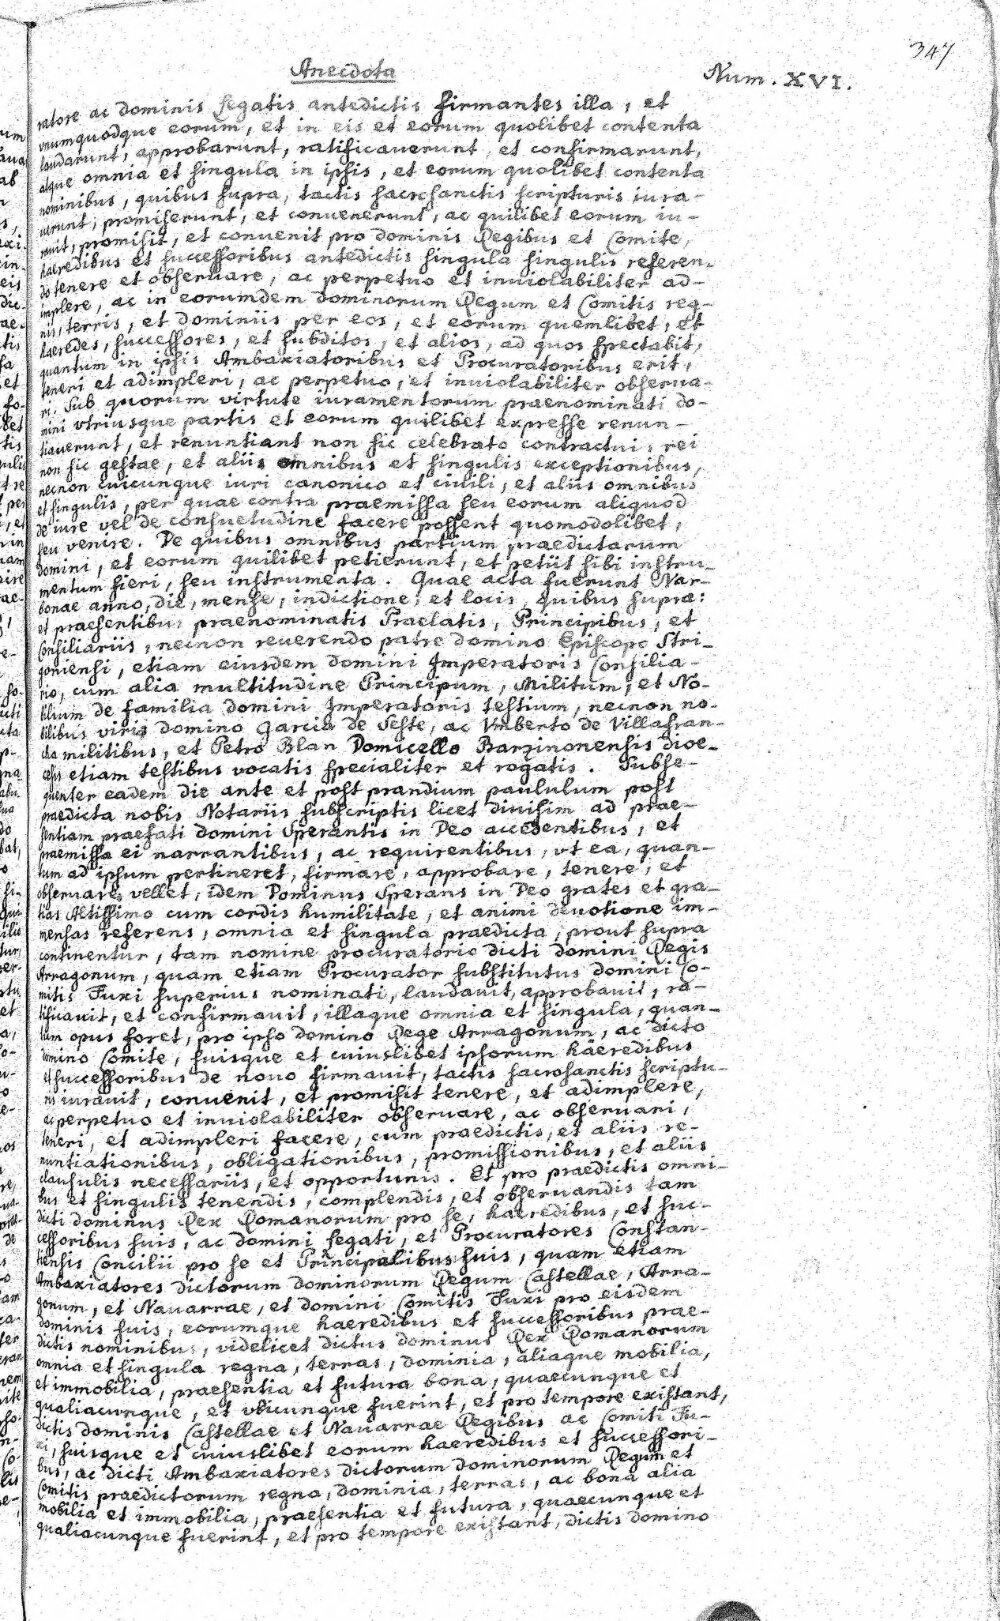 347
Anecdota
Num. XVI.
ratore ac dominis Legatis antedictis firmantes illa, et
vnumquodque eorum, et in eis et eorum quolibet contenta
laudarunt, approbarunt, ratificauerunt, et confirmarunt,
atque omnia et singula in ipsis, et eorum quolibet contenta
nominibus, quibus supra, tactis sacrosanctis scripturis iura-
uerunt, promiserunt, et conuenerunt, ac quilibet eorum iu-
rauit, promisit, et conuenit pro dominis Regibus et Comite,
haeredibus et successoribus antedictis singula singulis referen-
do tenere et obseruare, ac perpetuo et inuiolabiliter ad-
implere, ac in eorumdem dominorum Regum et Comitis reg-
nis, terris, et dominiis per eos, et eorum quemlibet, et
haeredes, successores, et subditos, et alios, ad quos spectabit,
quantum in ipsis Ambaxiatoribus et Procuratoribus erit,
teneri et adimpleri, ac perpetuo, et inuiolabiliter obserua-
ri. Sub quorum virtute iuramentorum praenominati do-
mini vtriusque partis et eorum quilibet expresse renun-
tiauerunt, et renuntiant non sic celebrato contractui, rei
non sic gestae, et aliis omnibus et singulis exceptionibus,
necnon cuicunque iuri canonico et ciuili, et aliis omnibus
et singulis, per quae contra praemissa seu eorum aliquod
de iure vel de consuetudine facere possent quomodolibet,
seu venire. De quibus omnibus partium praedictarum
domini, et eorum quilibet petierunt, et petiit sibi instru-
mentum fieri, seu instrumenta. Quae acta fuerunt Nar-
bonae anno, die, mense, indictione, et locis, quibus supra:
et praesentibus praenominatis Praelatis, Principibus, et
Consiliariis, necnon reuerendo patre domino Episcopo Stri-
goniensi, etiam eiusdem domini Imperatoris Consilia-
rio, cum alia multitudine Principum, Militum, et No-
bilium de familia domini Imperatoris testium, necnon no-
bilibus viris domino Garcia de Seste, ac Vmberto de Villafran-
cha militibus, et Petro Blan Domicello Barzinonensis dioe-
cesis etiam testibus vocatis specialiter et rogatis. Subse-
quenter eadem die ante et post prandium paululum post
praedicta nobis Notariis subscriptis licet diuisim ad prae-
sentiam praefati domini Sperantis in Deo accedentibus, et
praemissa ei narrantibus, ac requirentibus, vt ea, quan-
tum ad ipsum pertineret, firmare, approbare, tenere, et
obseruare vellet, idem Dominus Sperans in Deo grates et gra-
tias Altissimo cum cordis humilitate, et animi deuotione im-
mensas referens, omnia et singula praedicta, prout supra
continentur, tam nomine procuratorio dicti domini Regis
Arragonum, quam etiam Procurator substitutus domini Co-
mitis Fuxi superius nominati, laudauit, approbauit, ra-
tificauit, et confirmauit, illaque omnia et singula, quan-
tum opus foret, pro ipso domino Rege Arragonum, ac dicto
domino Comite, suisque et cuiuslibet ipsorum haeredibus
et successoribus de nouo firmauit, tactis sacrosanctis scriptu-
ris iurauit, conuenit, et promisit tenere, et adimplere,
ac perpetuo et inuiolabiliter obseruare, ac obseruari,
teneri, et adimpleri facere, cum praedictis, et aliis re-
nuntiationibus, obligationibus, promissionibus, et aliis
clausulis necessariis, et opportunis. Et pro praedictis omni-
bus et singulis tenendis, complendis, et obseruandis tam
dicti dominus Rex Romanorum pro se, haeredibus, et suc-
cessoribus suis, ac domini Legati, et Procuratores Constan-
tiensis Concilii pro se et Principalibus suis, quam etiam
Ambaxiatores dictorum dominorum Regum Castellae, Arra-
gonum, et Nauarrae, et domini Comitis Fuxi pro eisdem
dominis suis, eorumque haeredibus et successoribus prae-
dictis nominibus, videlicet dictus dominus Rex Romanorum
omnia et singula regna, terras, dominia, aliaque mobilia,
et immobilia, praesentia et futura bona, quaecunque et
qualiacunque, et vbicunque fuerint, et pro tempore existant,
dictis dominis Castellae et Nauarrae Regibus ac Comiti Fu-
xi, suisque et cuiuslibet eorum haeredibus et successori-
bus, ac dicti Ambaxiatores dictorum dominorum Regum et
Comitis praedictorum regna, dominia, terras, ac bona alia
mobilia et immobilia, praesentia et futura, quaecunque et
qualiacunque fuerint, et pro tempore existant, dictis domino